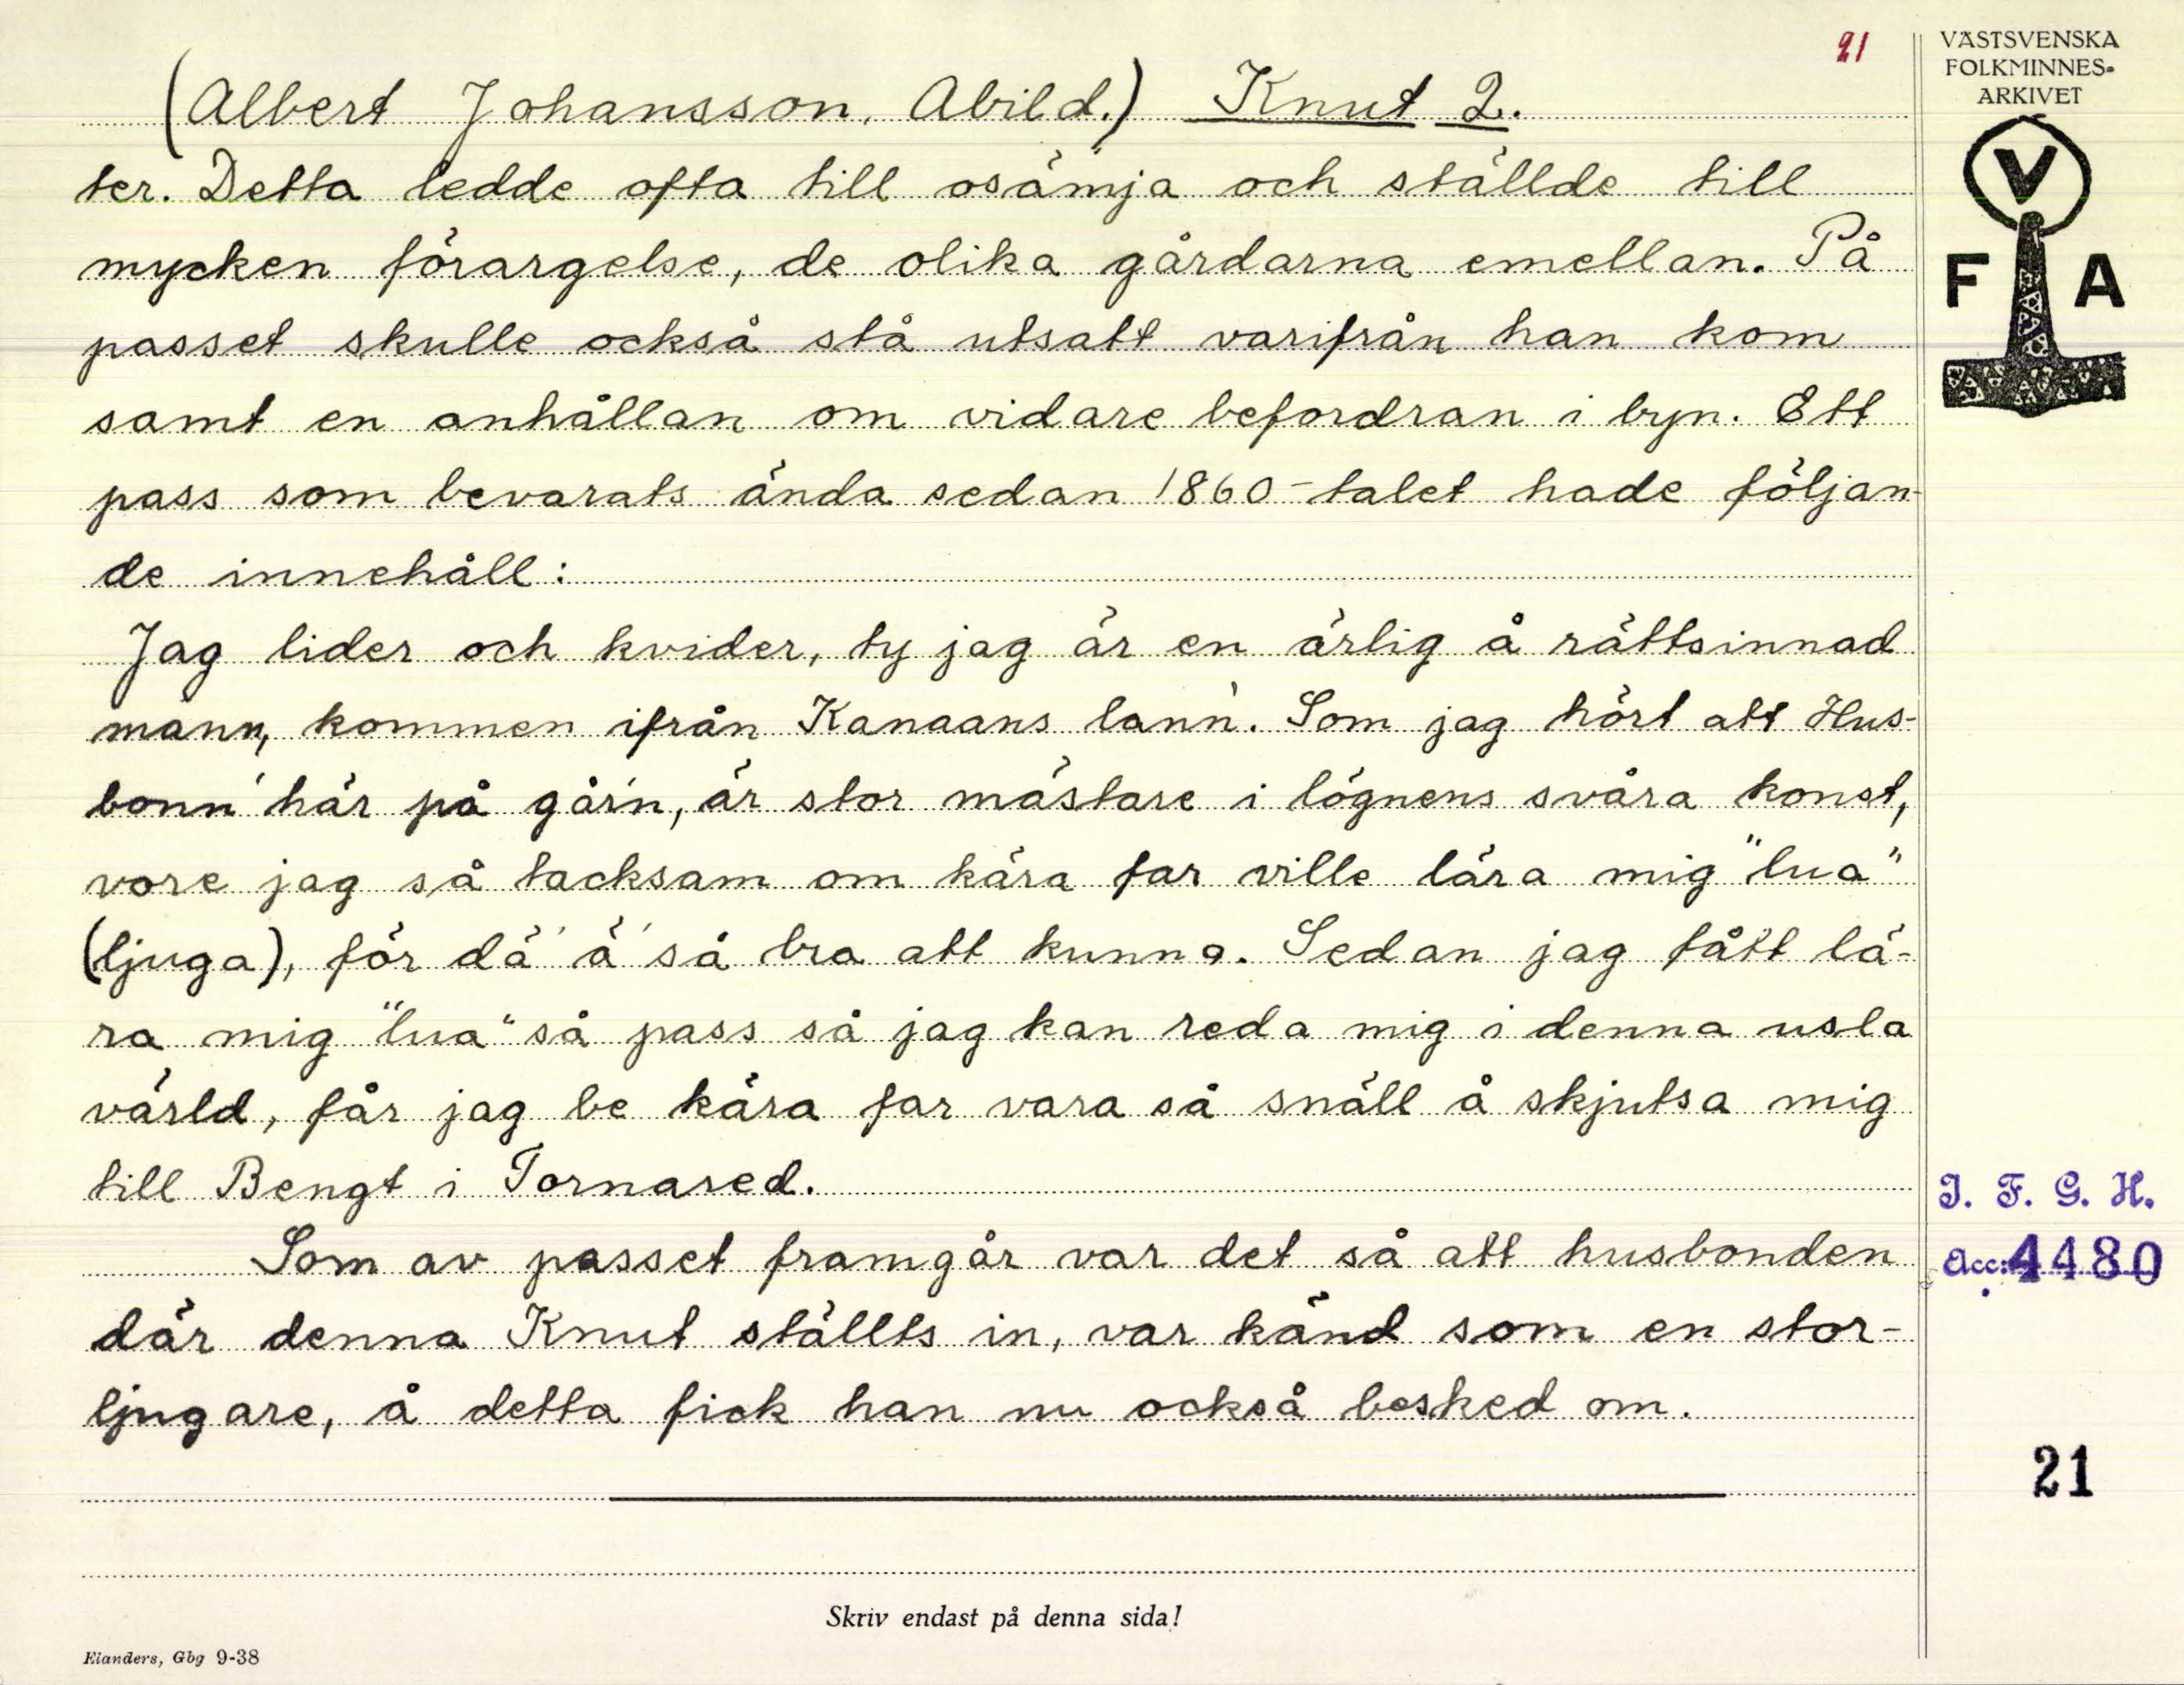 21
(Albert Johansson, Abild.) Knut 2.
ter. Detta ledde ofta till osämja och ställde till
mycken förargelse, de olika gårdarna emellan. På
passet skulle också stå utsatt varifrån han kom
samt en anhållan om vidare befordran i byn. Ett
pass som bevarats ända sedan 1860-talet hade följan-
de innehåll:
Jag lider och kvider, ty jag är en ärlig å rättsinnad
mann, kommen ifrån Kanaans lann'. Som jag hört att Hus-
bonn' här på går'n, är stor mästare i lögnens svåra konst,
vore jag så tacksam om kära far ville lära mig "lua"
(ljuga), för dä' ä' så bra att kunna. Sedan jag fått lä-
ra mig "lua" så pass så jag kan reda mig i denna usla
värld, får jag be kära far vara så snäll å skjutsa mig
till Bengt i Tornared.
Som av passet framgår var det så att husbonden
där denna Knut ställts in, var känd som en stor-
ljugare, å detta fick han nu också besked om.
Skriv endast på denna sida!
Elanders, Gbg 9-38
VÄSTSVENSKA
FOLKMINNES-
ARKIVET
V
F A
I. F. G. H.
Acc: 4480
21